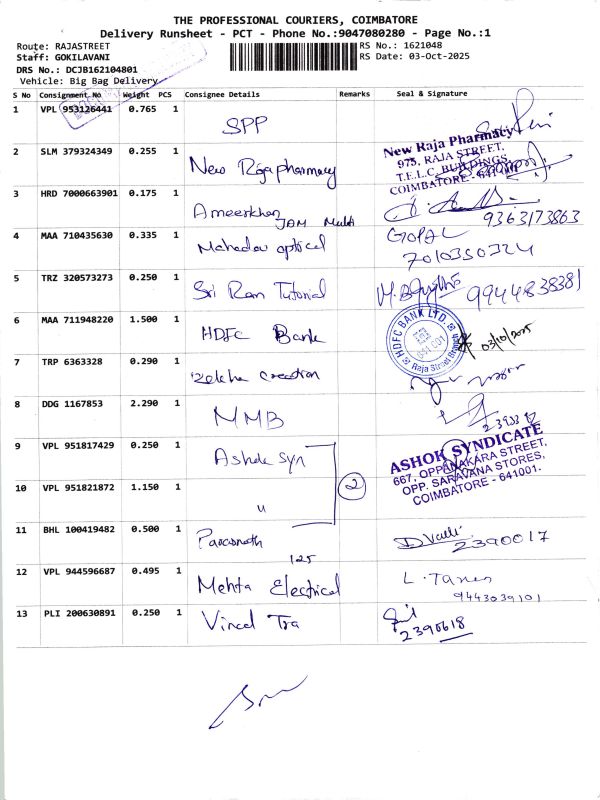 THE PROFESSIONAL COURIERS, COIMBATORE
Delivery Runsheet - PCT - Phone No.:9047080280 - Page No.:1
Route: RAJASTREET
RS No.: 1621048
Staff: GOKILAVANI
RS Date: 03-Oct-2025
DRS No.: DCJB162104801
Vehicle: Big Bag Delivery
S No Consignment No Weight PCS Consignee Details Remarks Seal & Signature
1 VPL 953126441 0.765 1 SPP
2 SLM 379324349 0.255 1 New Raja pharmacy
New Raja Pharmacy
975, RAJA STREET,
T.E.L.C. BUILDINGS,
COIMBATORE - 641 001
3 HRD 7000663901 0.175 1 Ameerkhan
9363173863
4 MAA 710435630 0.335 1 Mahadev optical
GOPAL
7010350324
5 TRZ 320573273 0.250 1 Sri Ram Tutorial
9944838381
6 MAA 711948220 1.500 1 HDFC Bank
HDFC BANK LTD.
Raja Street Branch
03/10/2025
7 TRP 6363328 0.290 1 creation
8 DDG 1167853 2.290 1 MMB
9 VPL 951817429 0.250 1 Ashok Syn
ASHOK SYNDICATE
667, OPPANAKARA STREET,
OPP. SARAVANA STORES,
COIMBATORE - 641001.
10 VPL 951821872 1.150 1 u 2
11 BHL 100419482 0.500 1 Parasnath
125
D Valli
2390017
12 VPL 944596687 0.495 1 Mehta Electrical
9443039101
13 PLI 200630891 0.250 1 Vincel Tra
2390618